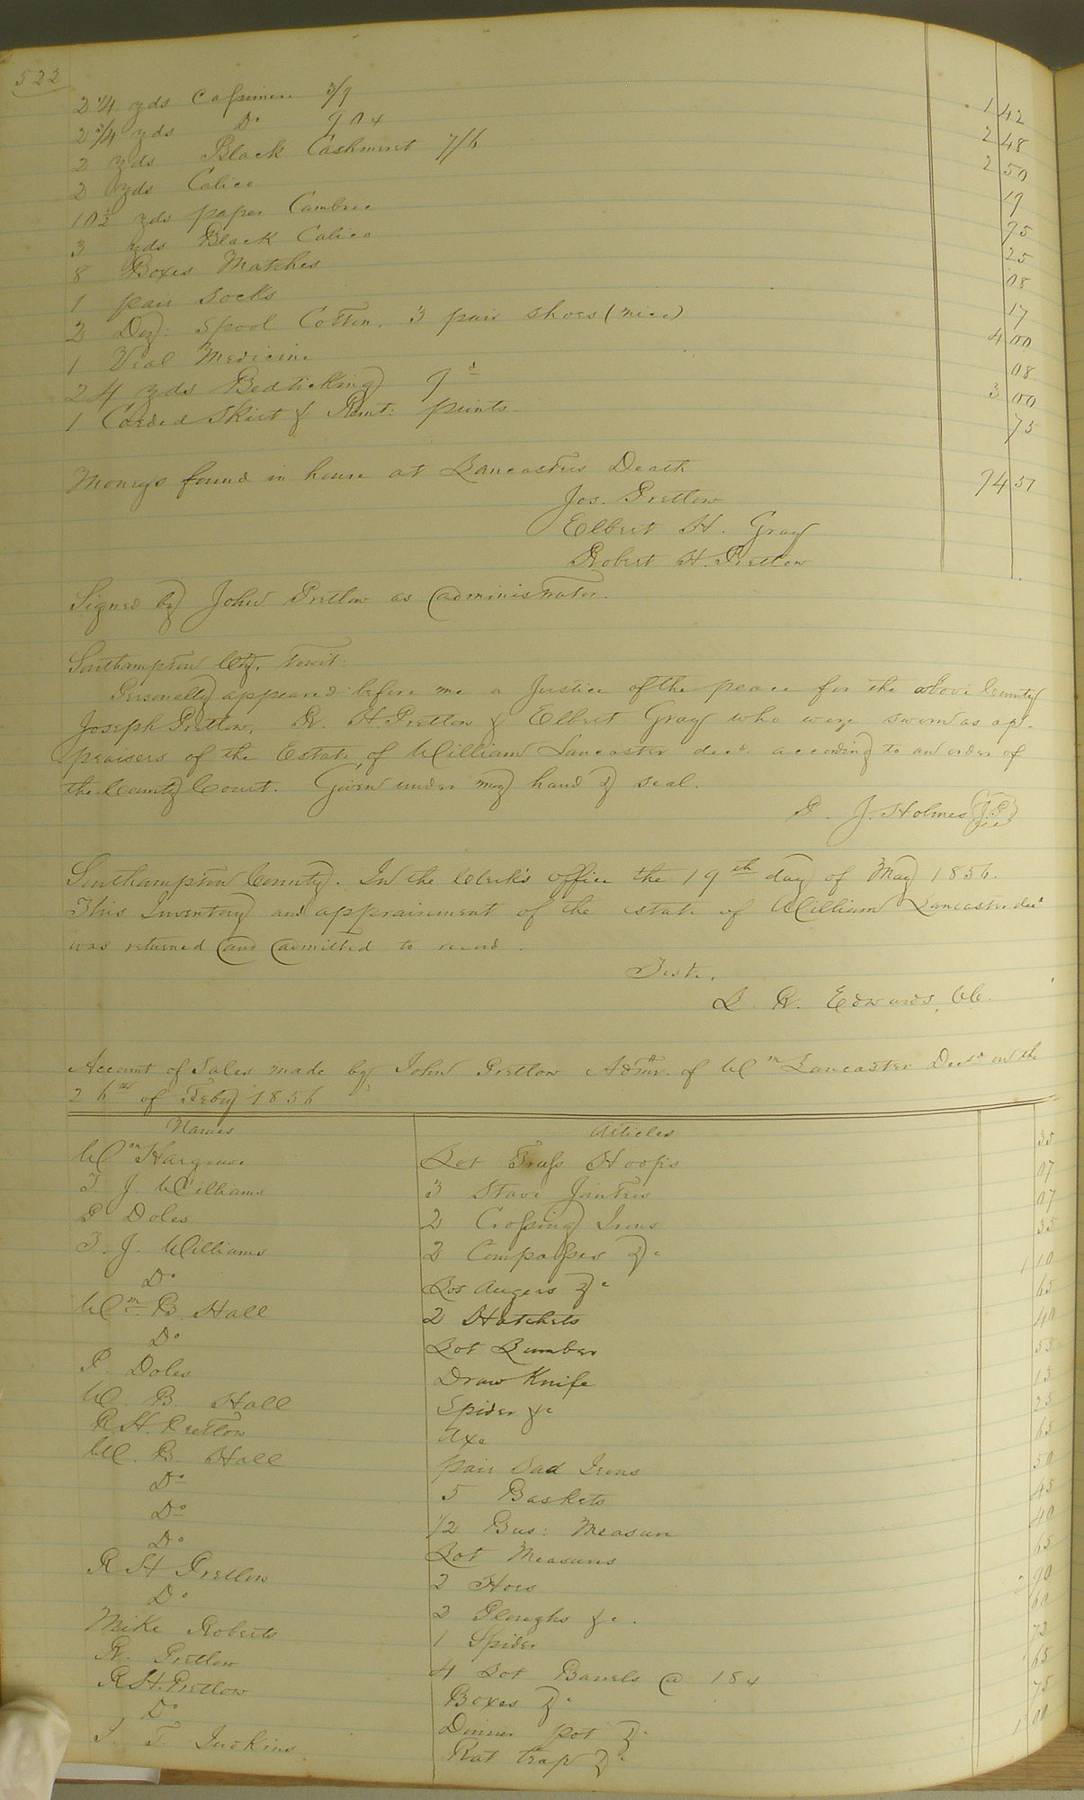 522
2 1/4 yds Cassimere 3/9 1 42
2 3/4 yds Do 90 c 2 48
2 yds Black Cashmeret 7/6 2 50
2 yds Calico 19
10 1/2 yds paper Cambric 95
3 yds Black Calico 25
8 Boxes Matches 08
1 pair Socks 17
2 Doz: Spool Cotton, 3 pair shoes (nice) 4 00
1 Vial Medicine 08
24 yds Bedticking 9d 3 00
1 Corded Skirt & Remt: prints 75
Moneys found in house at Lancasters Death 94 51
Jos. Pretlow
Elbert H. Gray
Robert H. Pretlow
Signed by John Pretlow as administrator.
Southampton Cty, towit:
Personally appeared before me a Justice of the peace for the above County
Joseph Pretlow, R. H Pretlow & Elbert Gray who were sworn as ap-
praisers of the Estate, of William Lancaster decd. according to an order of
the County Court. Given under my hand & seal.
G. J. Holmes J.P.
Southampton County. In the Clerk's office the 19th day of May 1856.
This Inventory and appraisment of the estate of William Lancaster decd
was returned and admitted to record.
Teste,
L. R. Edwards, CC.
Account of Sales made by John Pretlow Admr. of Wm Lancaster Decd on the
26th of Feby 1856
Names Articles
Wm Hargrave Lot Truss Hoops 35
T J Williams 3 Stave Jointers 07
P Doles 2 Crossing Irons 07
T. J. Williams 2 Compasses &c 35
Do Lot Augers &c 1 10
Wm B Hall 2 Hatchets 65
Do Lot Lumber 40
P. Doles Draw Knife 55
W. B. Hall Spider &c 15
R H. Pretlow Axe 25
W. B. Hall pair Sad Irons 65
Do 5 Baskets 50
Do 1/2 Bus: Measure 45
Do Lot Measures 40
R H Pretlow 2 Hoes 65
Do 2 Ploughs &c. 90
Mike Roberts 1 Spider 60
R. Pretlow 4 Lot Barrels @ 18 c 72
R H. Pretlow Boxes &c 65
Do Dinner pot &c 75
J. T. Jenkins Rat trap &c 1 00